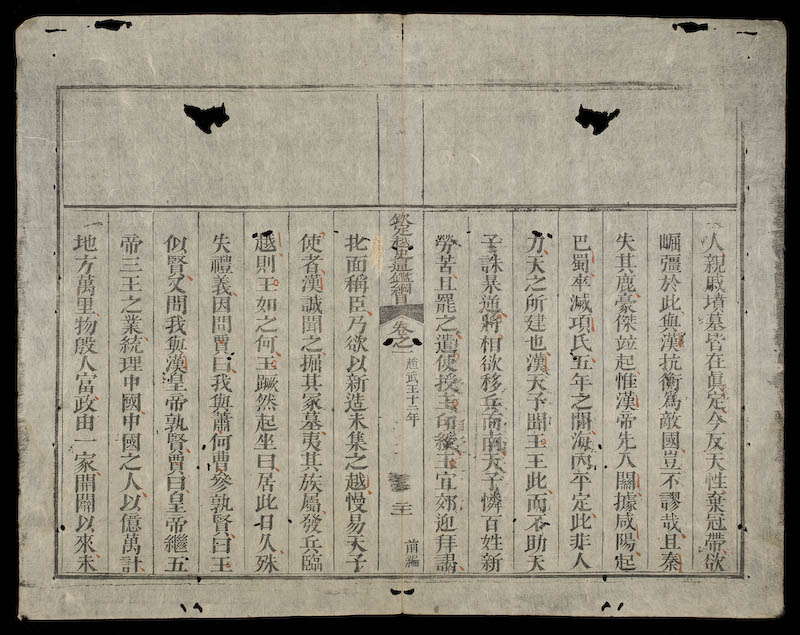 人親戚墳墓皆在眞定今反天性棄冠帶欲
崛彊於此與漢抗衡爲敵國豈不謬哉且秦
失其鹿豪傑竝起惟漢帝先入關據咸陽起
巴蜀率滅項氏五年之間海內平定此非人
力天之所建也漢天子聞王王此而不助天
子誅暴逆將相欲移兵而南天子憐百姓新
勞苦且罷之遣使授王印綬王宜郊迎拜謁
欽定越史通鑑綱目 卷之一 趙武王十二年 二十 前編
北面稱臣乃欲以新造未集之越慢易天子
使者漢誠聞之掘其冢墓夷其族屬發兵臨
越則王如之何王蹶然起坐曰居此日久殊
失禮義因問賈曰我與蕭何曹參孰賢曰王
似賢又問我與漢皇帝孰賢賈曰皇帝繼五
帝三王之業統理中國中國之人以億萬計
地方萬里物殷人富政由一家開闢以來未